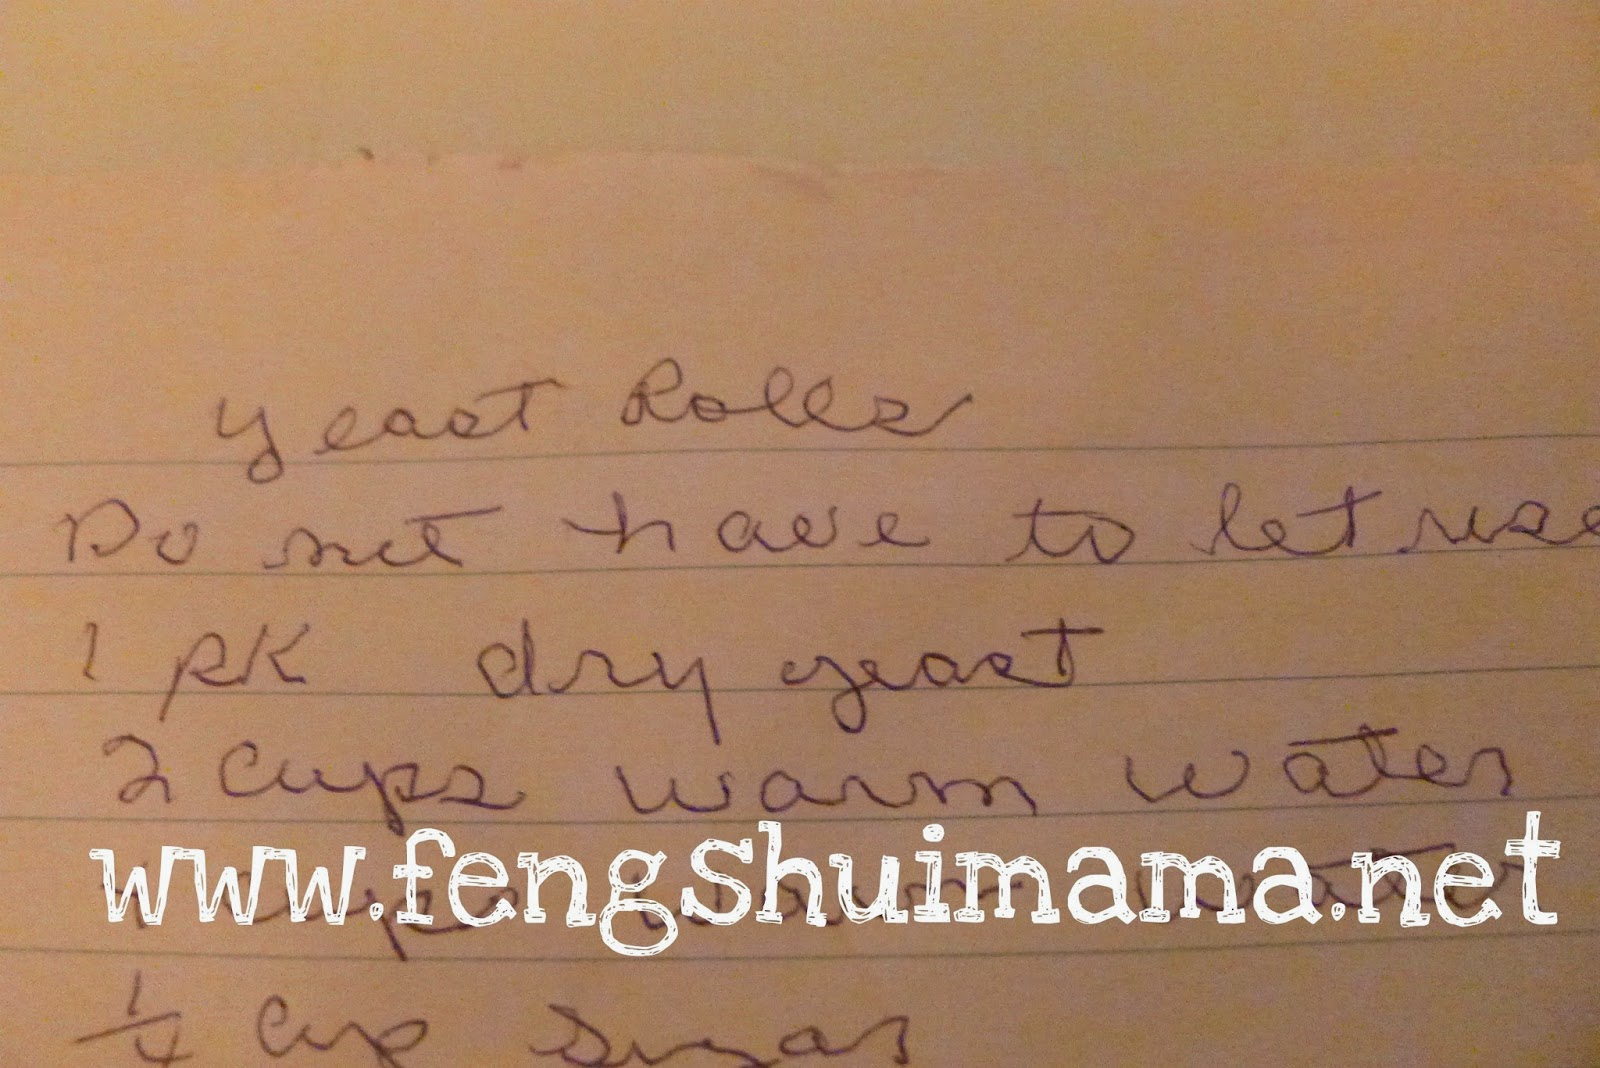 Yeast Rolls
Do not have to let rise
1 pk dry yeast
2 cups warm water
www.fengshuimama.net
1/4 cup sugar